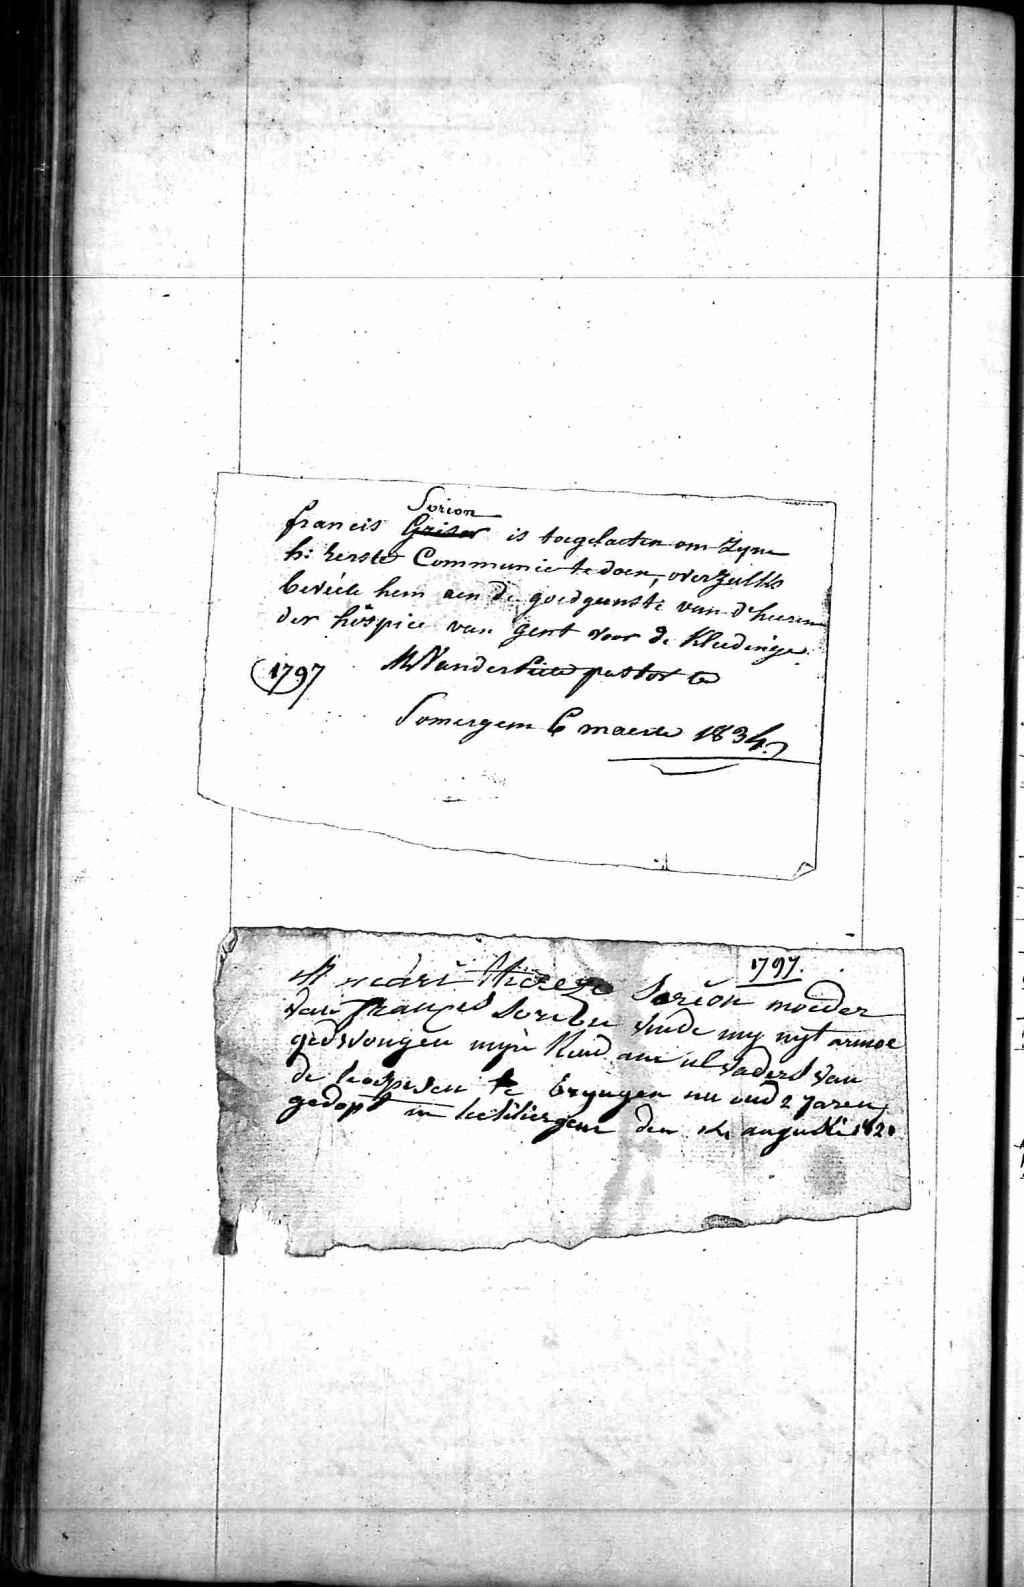 Sorion
francis Griser is toegelaeten om zyne
h: eerste Communie te doen, overzulks
beveéle hem aen de goedgunste van d'heeren
der hospice van gent voor de kleedinge.
1797 pastor te
Somergem 6 maerte 1834
1797.
moeder
van françies Sorion vinde my uyt armoe
gedwongen mijn Kind aen ul vaders van
de hospisen te brengen nu oud 2 jaren
gedopt in den augusti 1821